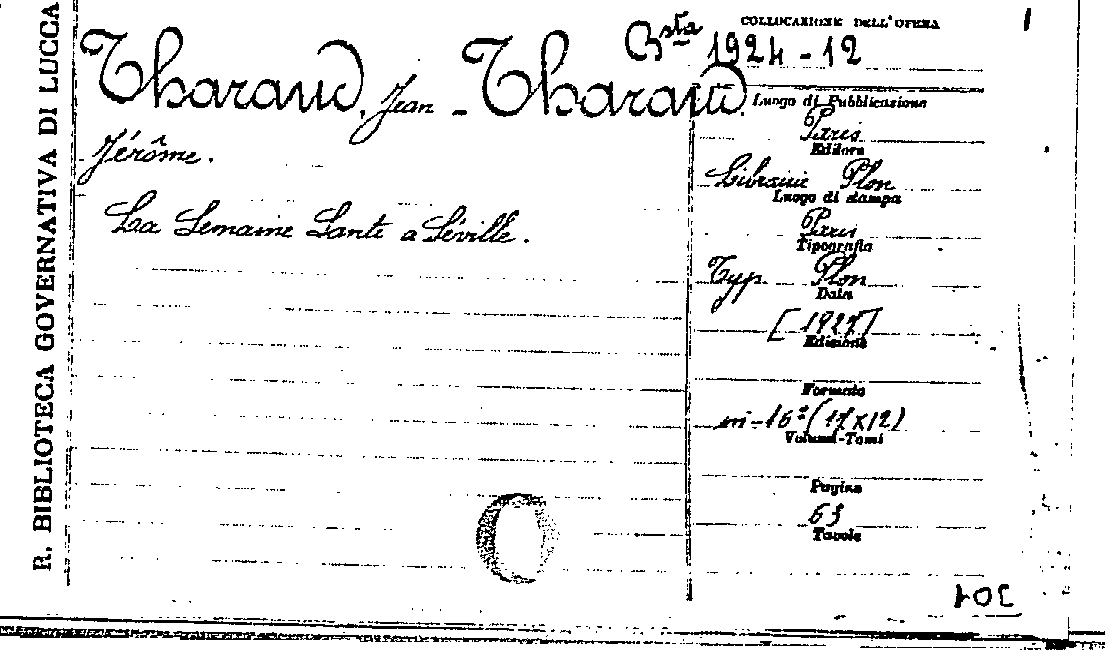 R. BIBLIOTECA GOVERNATIVA DI LUCCA
COLLOCAZIONE DELL'OPERA
Bsta 1924-12
Tharaud, Jean - Tharaud
Jérôme.
La Semaine Sante a Séville.
Luogo di Pubblicazione
Paris
Editore
Librairie Plon
Luogo di stampa
Paris
Tipografia
Typ. Plon
Data
[1927]
Edizione
Formato
in-16º (17x12)
Volumi-Tomi
Pagine
63
Tavole